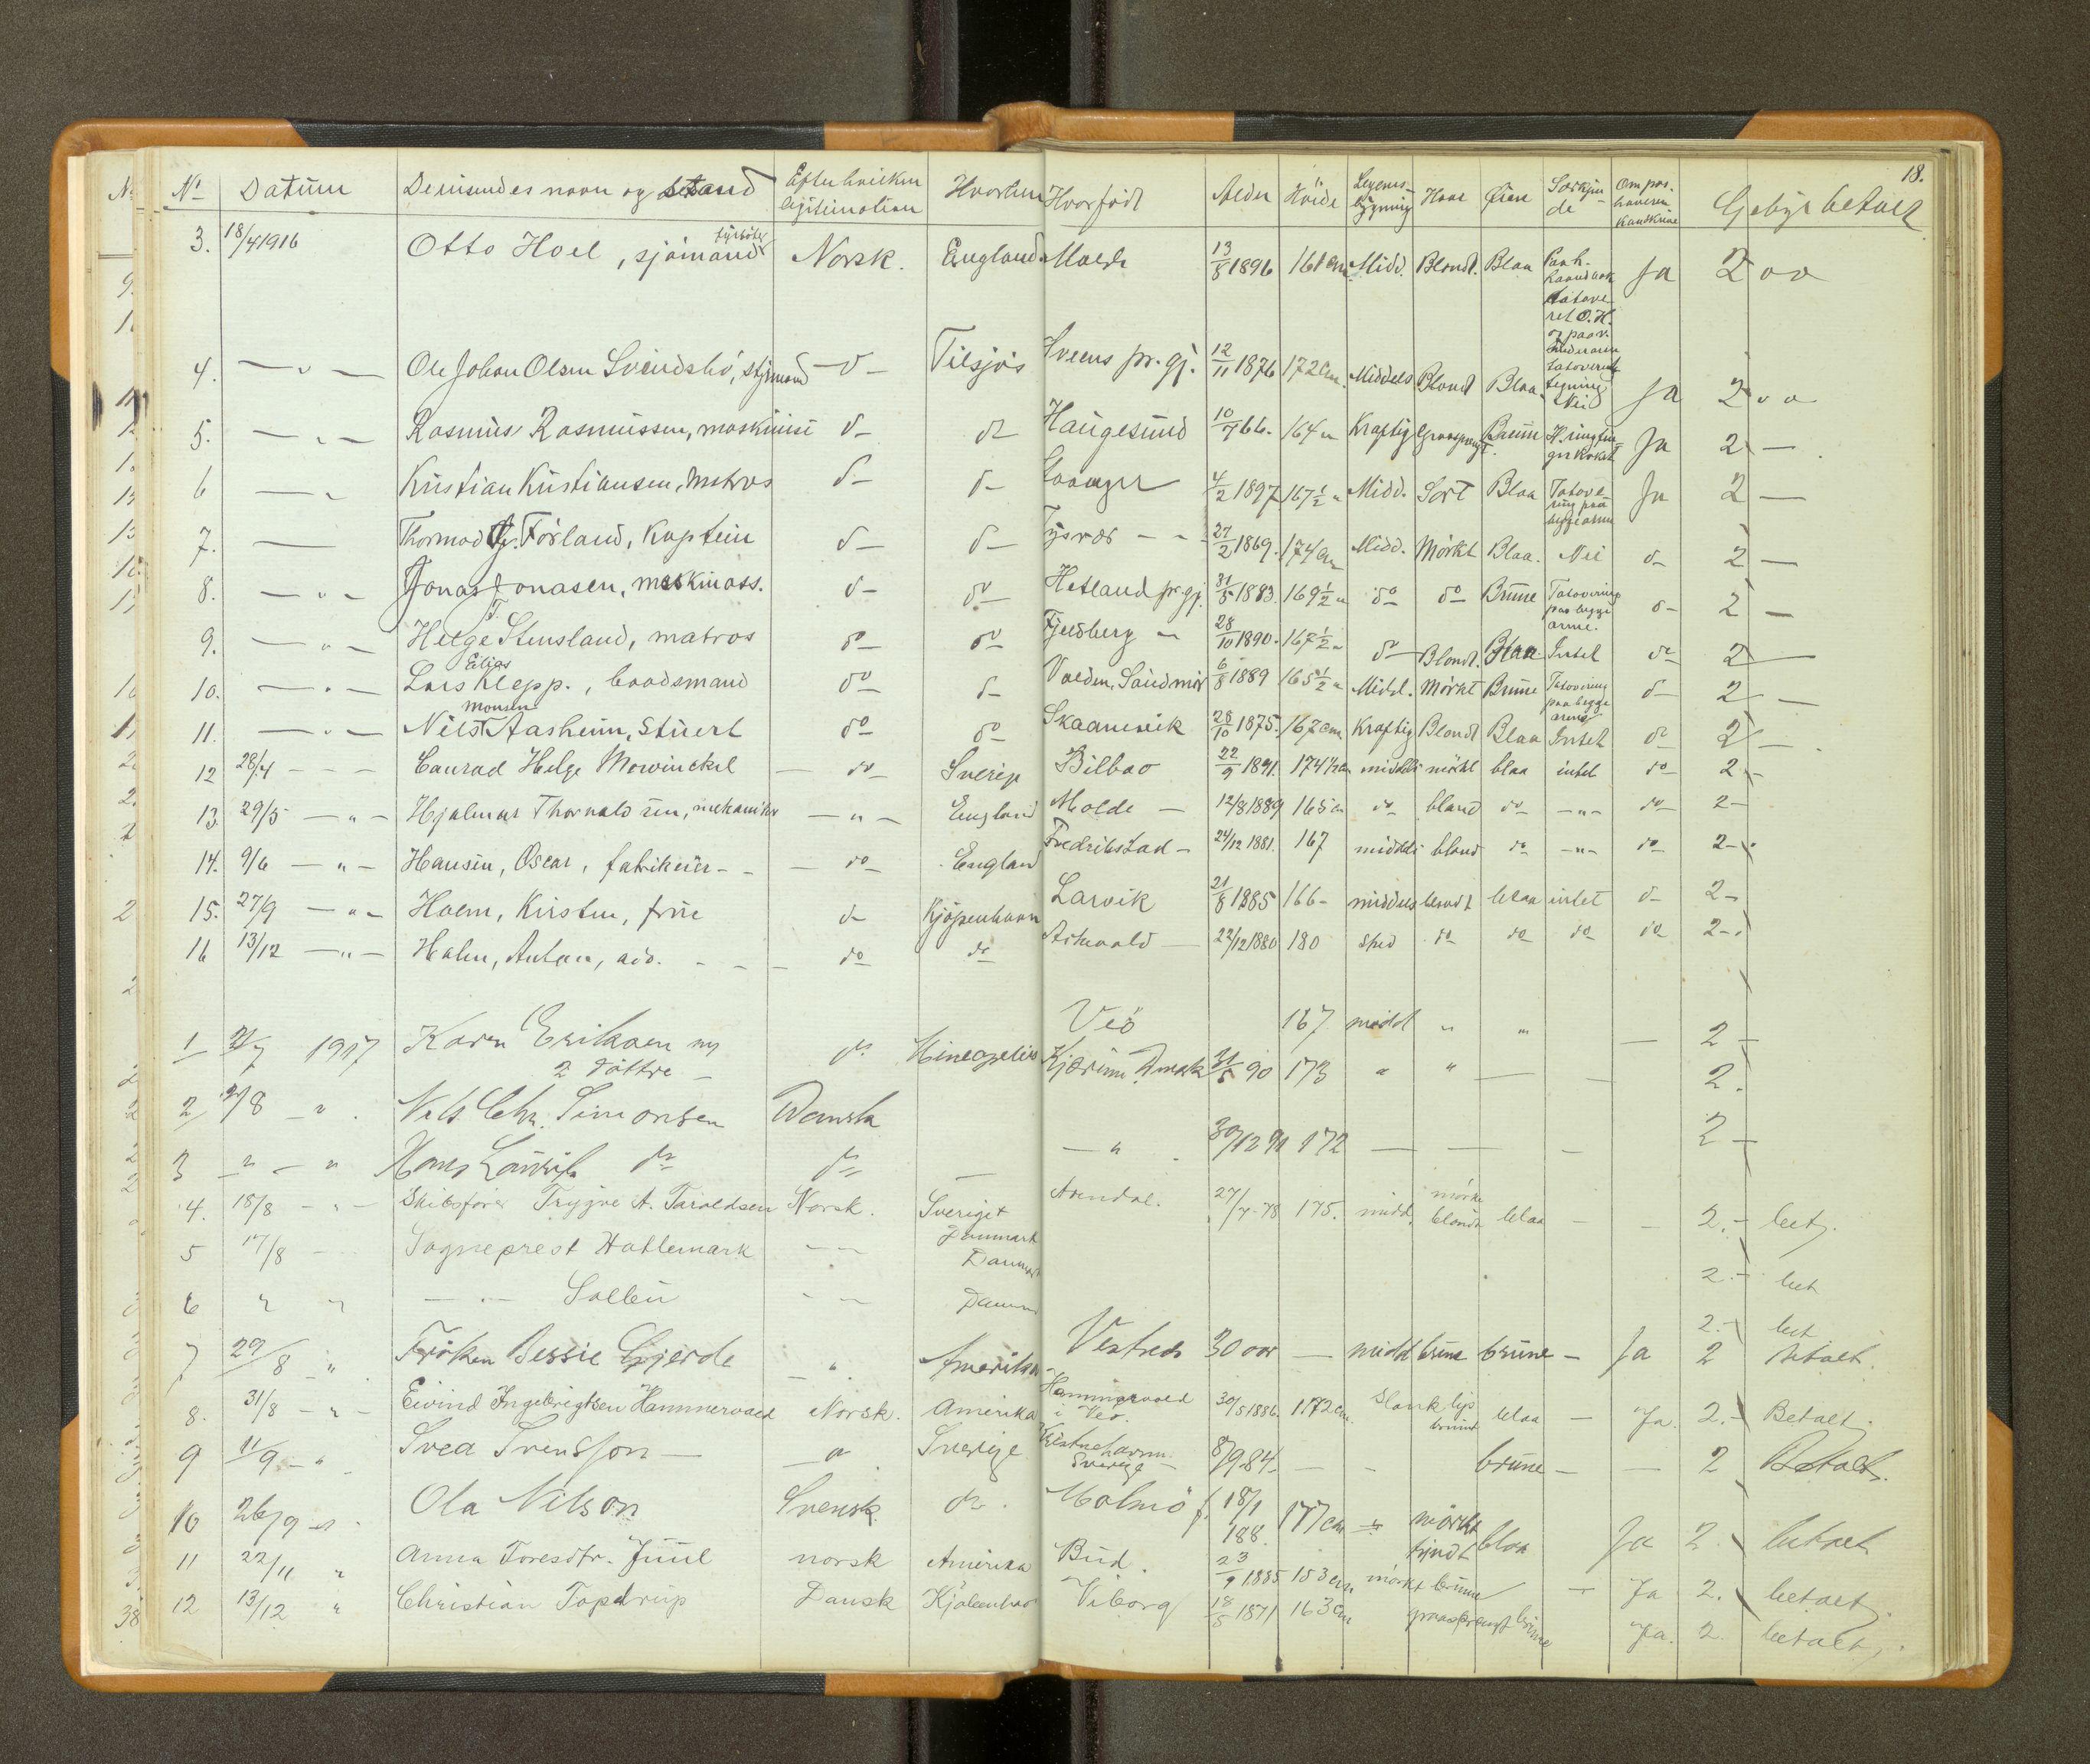 18.
No Datum Dereisendes navn og stand Efter hvilken legitimation Hvorhen Hvor född Alder Höide Legems-bygning Haar Öine Særkjende Om pas-haveren kan skrive Gebyr betalt
3. 18/4 1916 Otto Hoel, sjömand fyrböter Norsk. England Molde 13/8 1896 161 cm. Midd. Blondt. Blaa Ja 2 00
4. — " — Ole Johan Olsen Svendsbö, styrmand — " — Tilsjös Sveens pr. gj. 12/11 1876 172 cm. Middels Blond Blaa Nei Ja 2 00
5. — " — Rasmus Rasmussen, maskinist do do Haugesund 10/7 66. 164 " Kraftig Graasprengt. Brune Ja 2 —
6 — " Kristian Kristiansen, Matros do do Stavanger 4/2 1897 167 1/2 " Midd. Sort Blaa Tatovering paa begge arme Ja 2 —
7. — Thormod Förland, Kaptein do do Tysvær 27/2 1869. 174 cm Midd. Mörkt Blaa. Nei do 2 —
8. — " — Jonas Jonasen, maskinass. do do Hetland pr. gj. 31/5 1883. 169 1/2 " do do Brune Tatovering paa begge arme. do 2 —
9. — " — Helge T. Stensland, matros do do Fjeldberg 28/10 1890. 167 1/2 " do Blond. Blaa Intet do 2 —
10. — " — Lars Elias Klepp., baadsmand do do Volden, Söndmör 6/8 1889 165 1/2 " Midd. Mörkt Brune Tatovering paa begge arme do 2 —
11. — " — Nils Monsen Aasheim, Stuert do do Skaanevik 28/10 1875. 167 cm Kraftig Blond Blaa Intet do 2 —
12 28/4 — Conrad Helge Mowinckel — do Sverige Bilbao 22/9 1891. 174 1/2 cm middels mörkt blaa intet do 2 —
13. 29/5 — " — Hjalmar Thorvaldsen, mekaniker — " — England Molde — 12/8 1889 165 cm do blond do — " — do 2 —
14. 9/6 — " — Hansen, Oscar, fabrikeier — do England Fredrikstad — 24/12 1881. 167 middels blond do — " — do 2 —
15. 27/9 — " — Holm, Kirsten, frue do Kjöpenhavn Larvik 21/8 1885 166 — middels blondt blaa intet do 2 —
16 13/12 — " — Holm, Anton, adv. do do 22/12 1880 180 do do do do 2 —
1 1917 Karen Eriksen og 2 döttre do Mineapolis Veö 167 midd " " — 2 —
2 8 — " Nils Chr. Simonsen Dansk Dmark 31/5 90 173 " " — — 2.
3 — " — " Hans Laurits do do — — " 30/12 91 172 — — — 2 —
4. 18/8 — " — Skibsförer Trygve A. Taraldsen Norsk. Sveriget Danmark Arendal. 27/4 - 78 175. midd. mörke blonde blaa — — 2. — bet.
5 17/8 — Sogneprest Hatlemark — — Danmark 2. — bet
6 " " — " — Sollin — — Danm 2. — bet
7 29/8 — " Fröken Bessie Gjerde — " Amerika Vestnes 30 aar — midd brune brune — Ja 2 betalt.
8. 31/8 — " — Eivind Ingebrigtsen Hammervold Norsk. Amerika Hammervold i Veö. 30/5 1886. 172 cm. Slank lys brunt blaa — Ja 2. — Betalt.
9 11/9 — " Svea Svensson — — " Sverige Sverige 8/9 84. — — brune — — 2 Betalt.
10 26/9 " Ola Nilson Svensk. do. Malmö f. 18/1 188. 177 cm — mörkt tyndt blaa Ja 2. betalt
11 22/11 " Anna Toresdtr. Juul norsk Amerika Bud. 23/9 1885 153 cm mörkt brune — Ja 2. betalt.
12 13/12 " Christian Topdrup Dansk Kjöbenhav Viborg 18/5 1871 163 cm graasprengt brune Ja. 2. betalt.